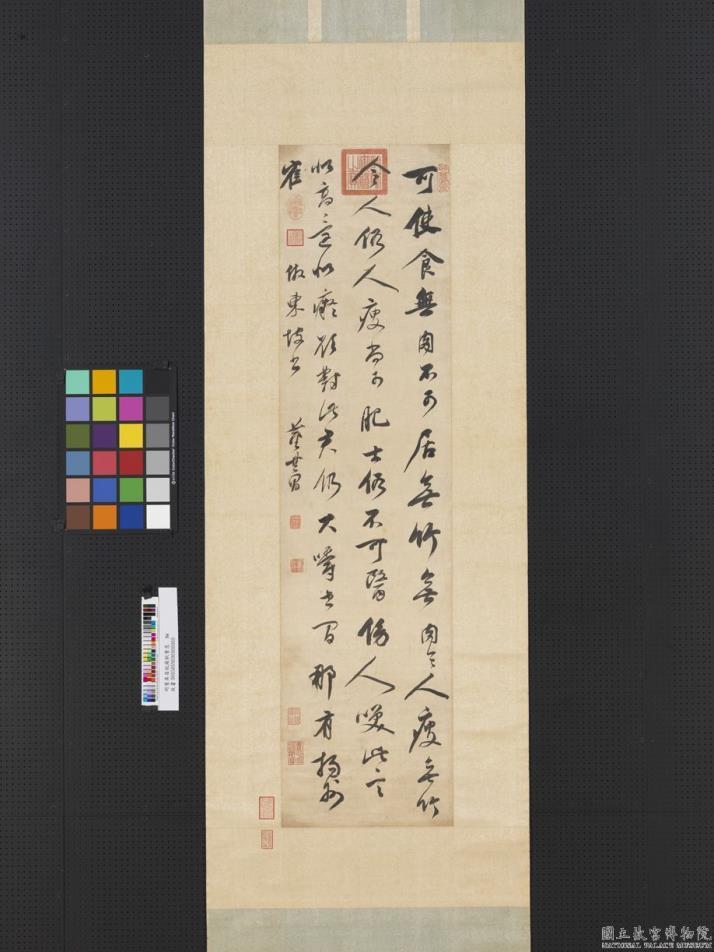 可使食無肉不可居無竹無肉令人瘦無竹
令人俗人瘦尚可肥士俗不可醫傍人咲此言
似高還似癡對此君仍大嚼世間那有揚州
隺 倣東坡書 董其昌
國立故宮博物院
NATIONAL PALACE MUSEUM